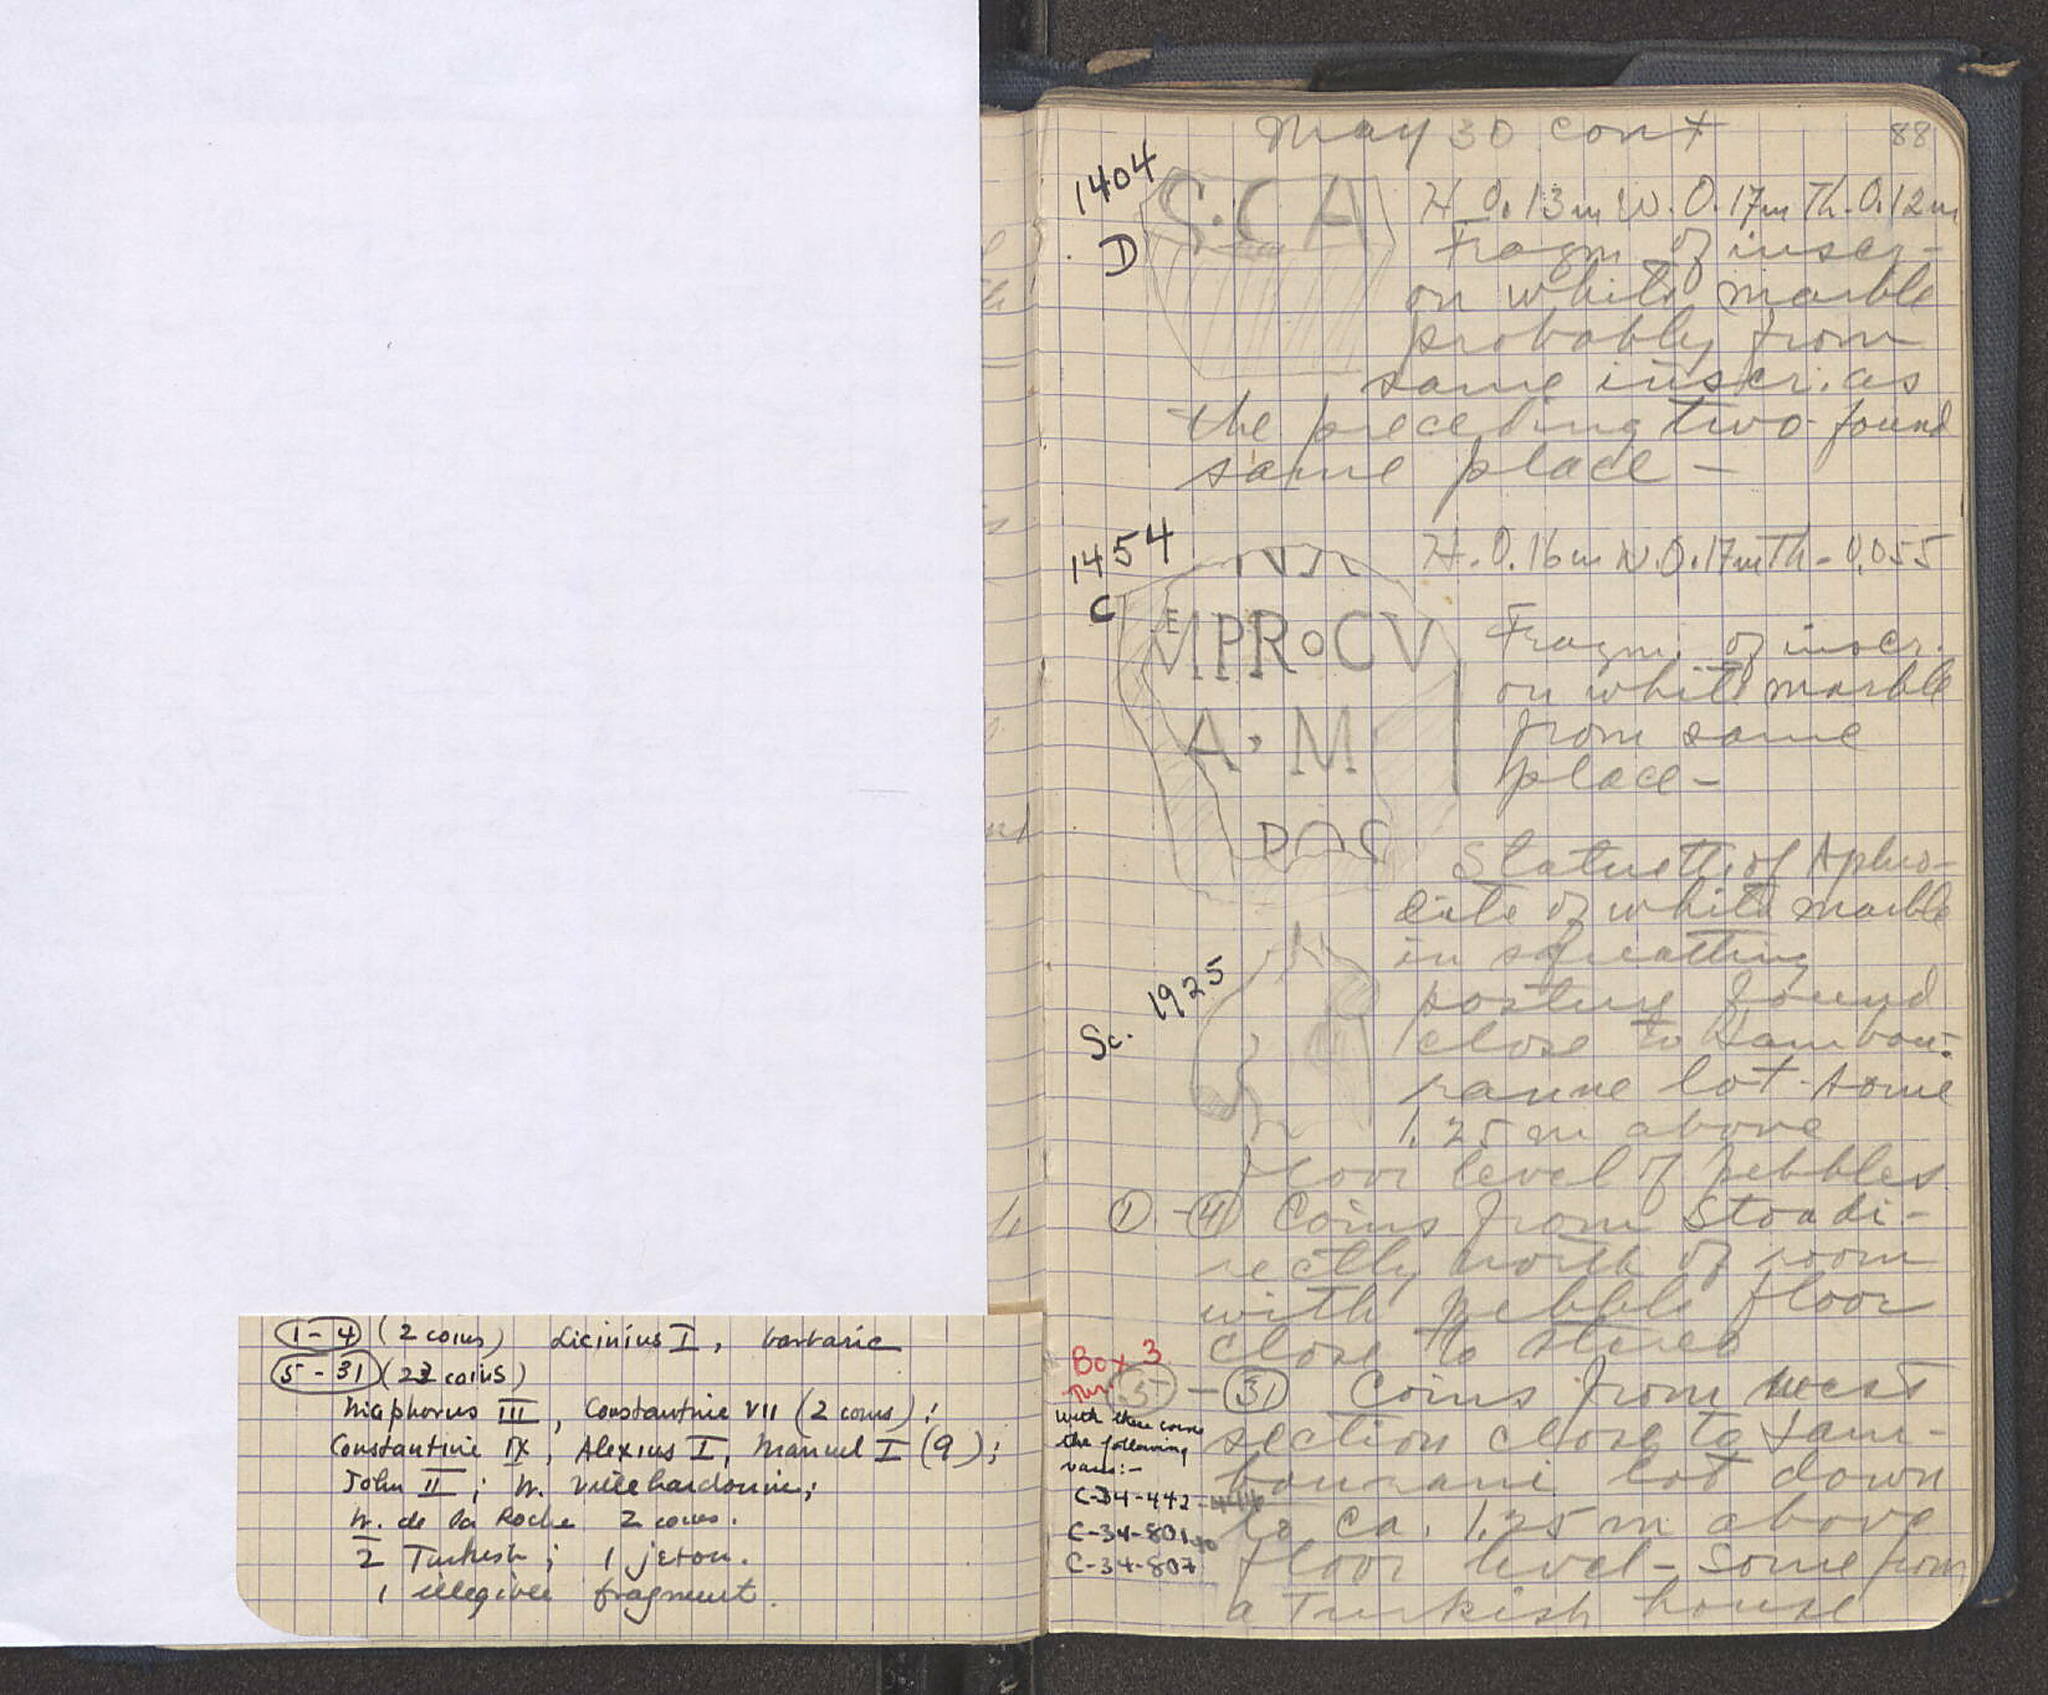 May 30 cont 88
1404
D
S.CA
H 0.13m W. 0.17m Th. 0.12m
Fragm. of inscr-
on white marble
probably from
same inscr. as
the preceding two found
same place –
1454
C
H. 0.16m W. 0.17m Th – 0.055
MPRoCV
A · M
Fragm. of inscr.
on white marble
from same
place –
Statuette of Aphro-
dite of white marble
in squatting
posture found
close to Tambou-
ranne lot. some
1.25 m above
floor level of pebbles
Sc. 1925
① - ④ Coins from Stoa di-
rectly north of room
with pebble floor
close to stereo
Box 3
5 - 31 Coins from west
section close to Tam-
bourani lot down
to ca. 1.25 m above
floor level – some from
a Turkish house
With these coins
the following
vases:-
C-34-442
C-34-801
C-34-807
1-4 (2 coins) Licinius I, barbaric
5-31 (23 coins)
Nicephorus III, Constantine VII (2 coins);
Constantine IX, Alexius I, Manuel I (9);
John II; W. Villehardouin;
W. de la Roche 2 coins.
2 Turkish; 1 jeton.
1 illegible fragment.